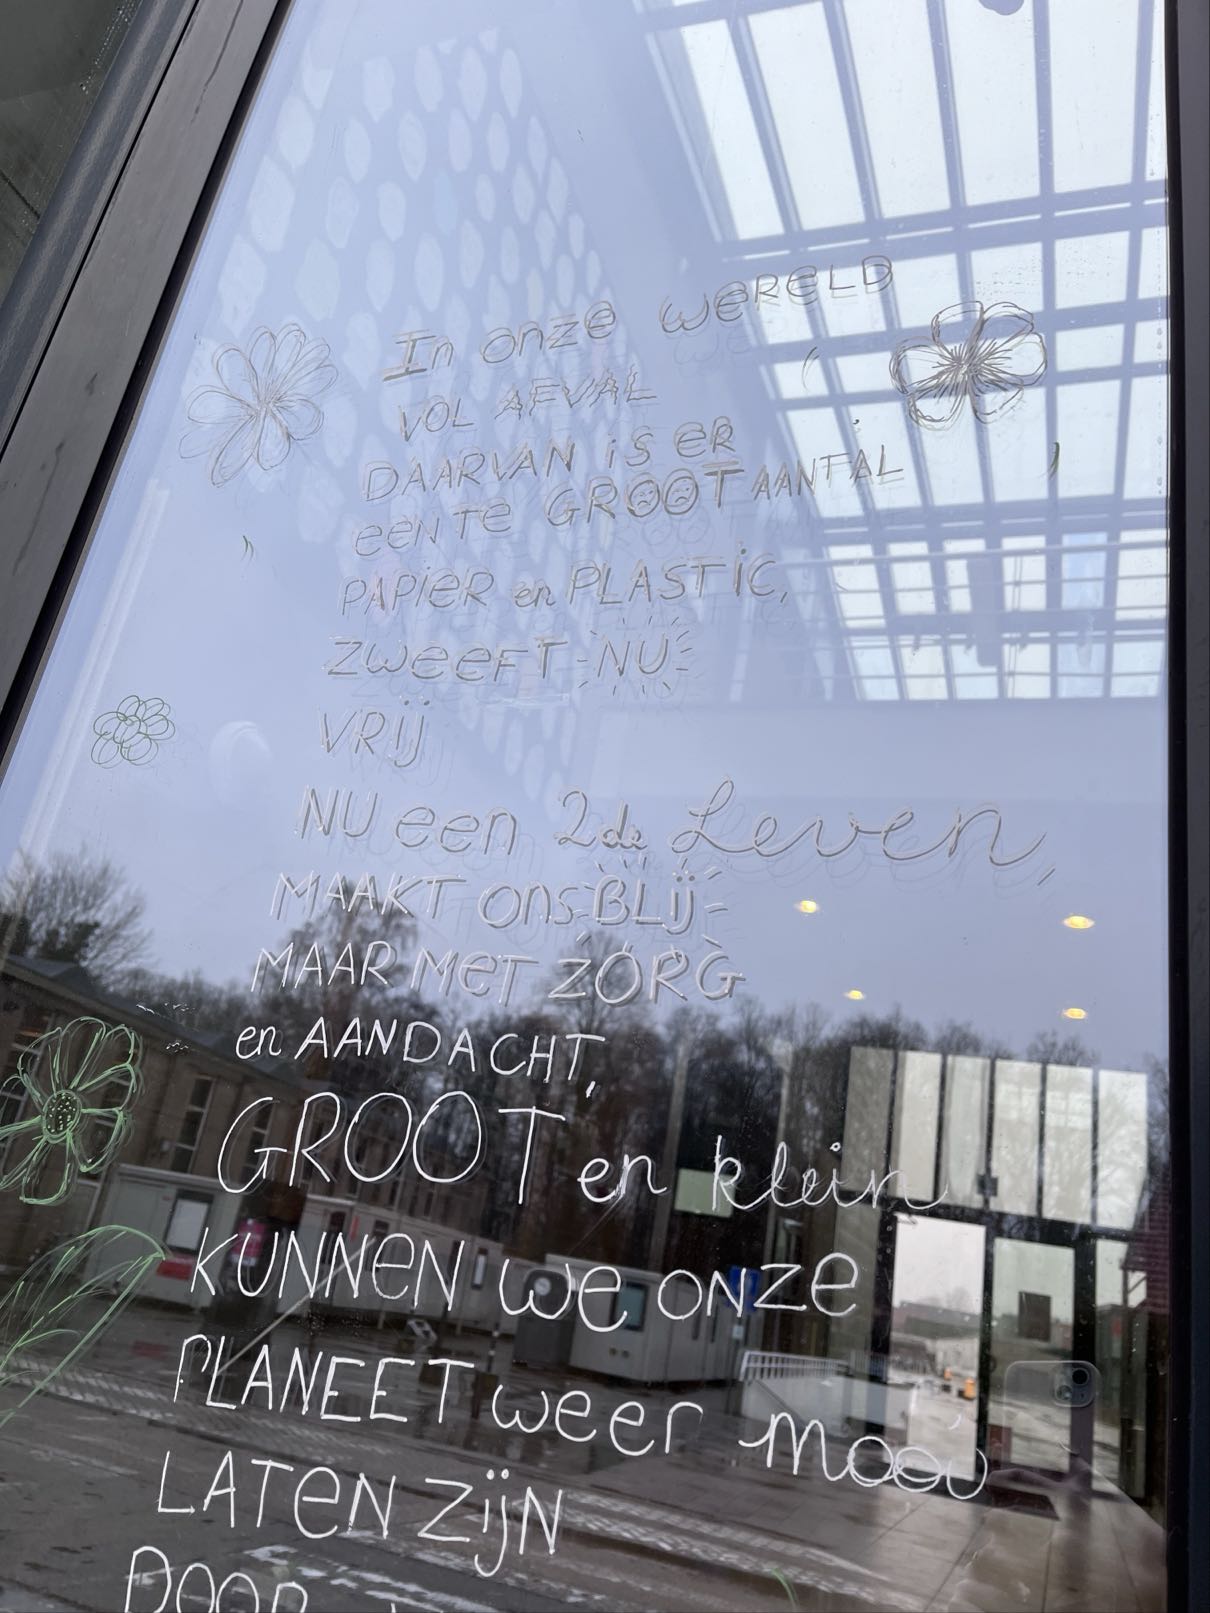 In onze WERELD
VOL AFVAL
DAARVAN is ER
EEN TE GROOT AANTAL
PAPIER en PLASTIC,
ZWEEFT NU
VRIJ
NU een 2de Leven,
MAAKT ons BLIJ
MAAR MET ZORG
en AANDACHT,
GROOT en klein
KUNNEN we ONZE
PLANEET weer mooi
LATEN ZIJN
DOOR